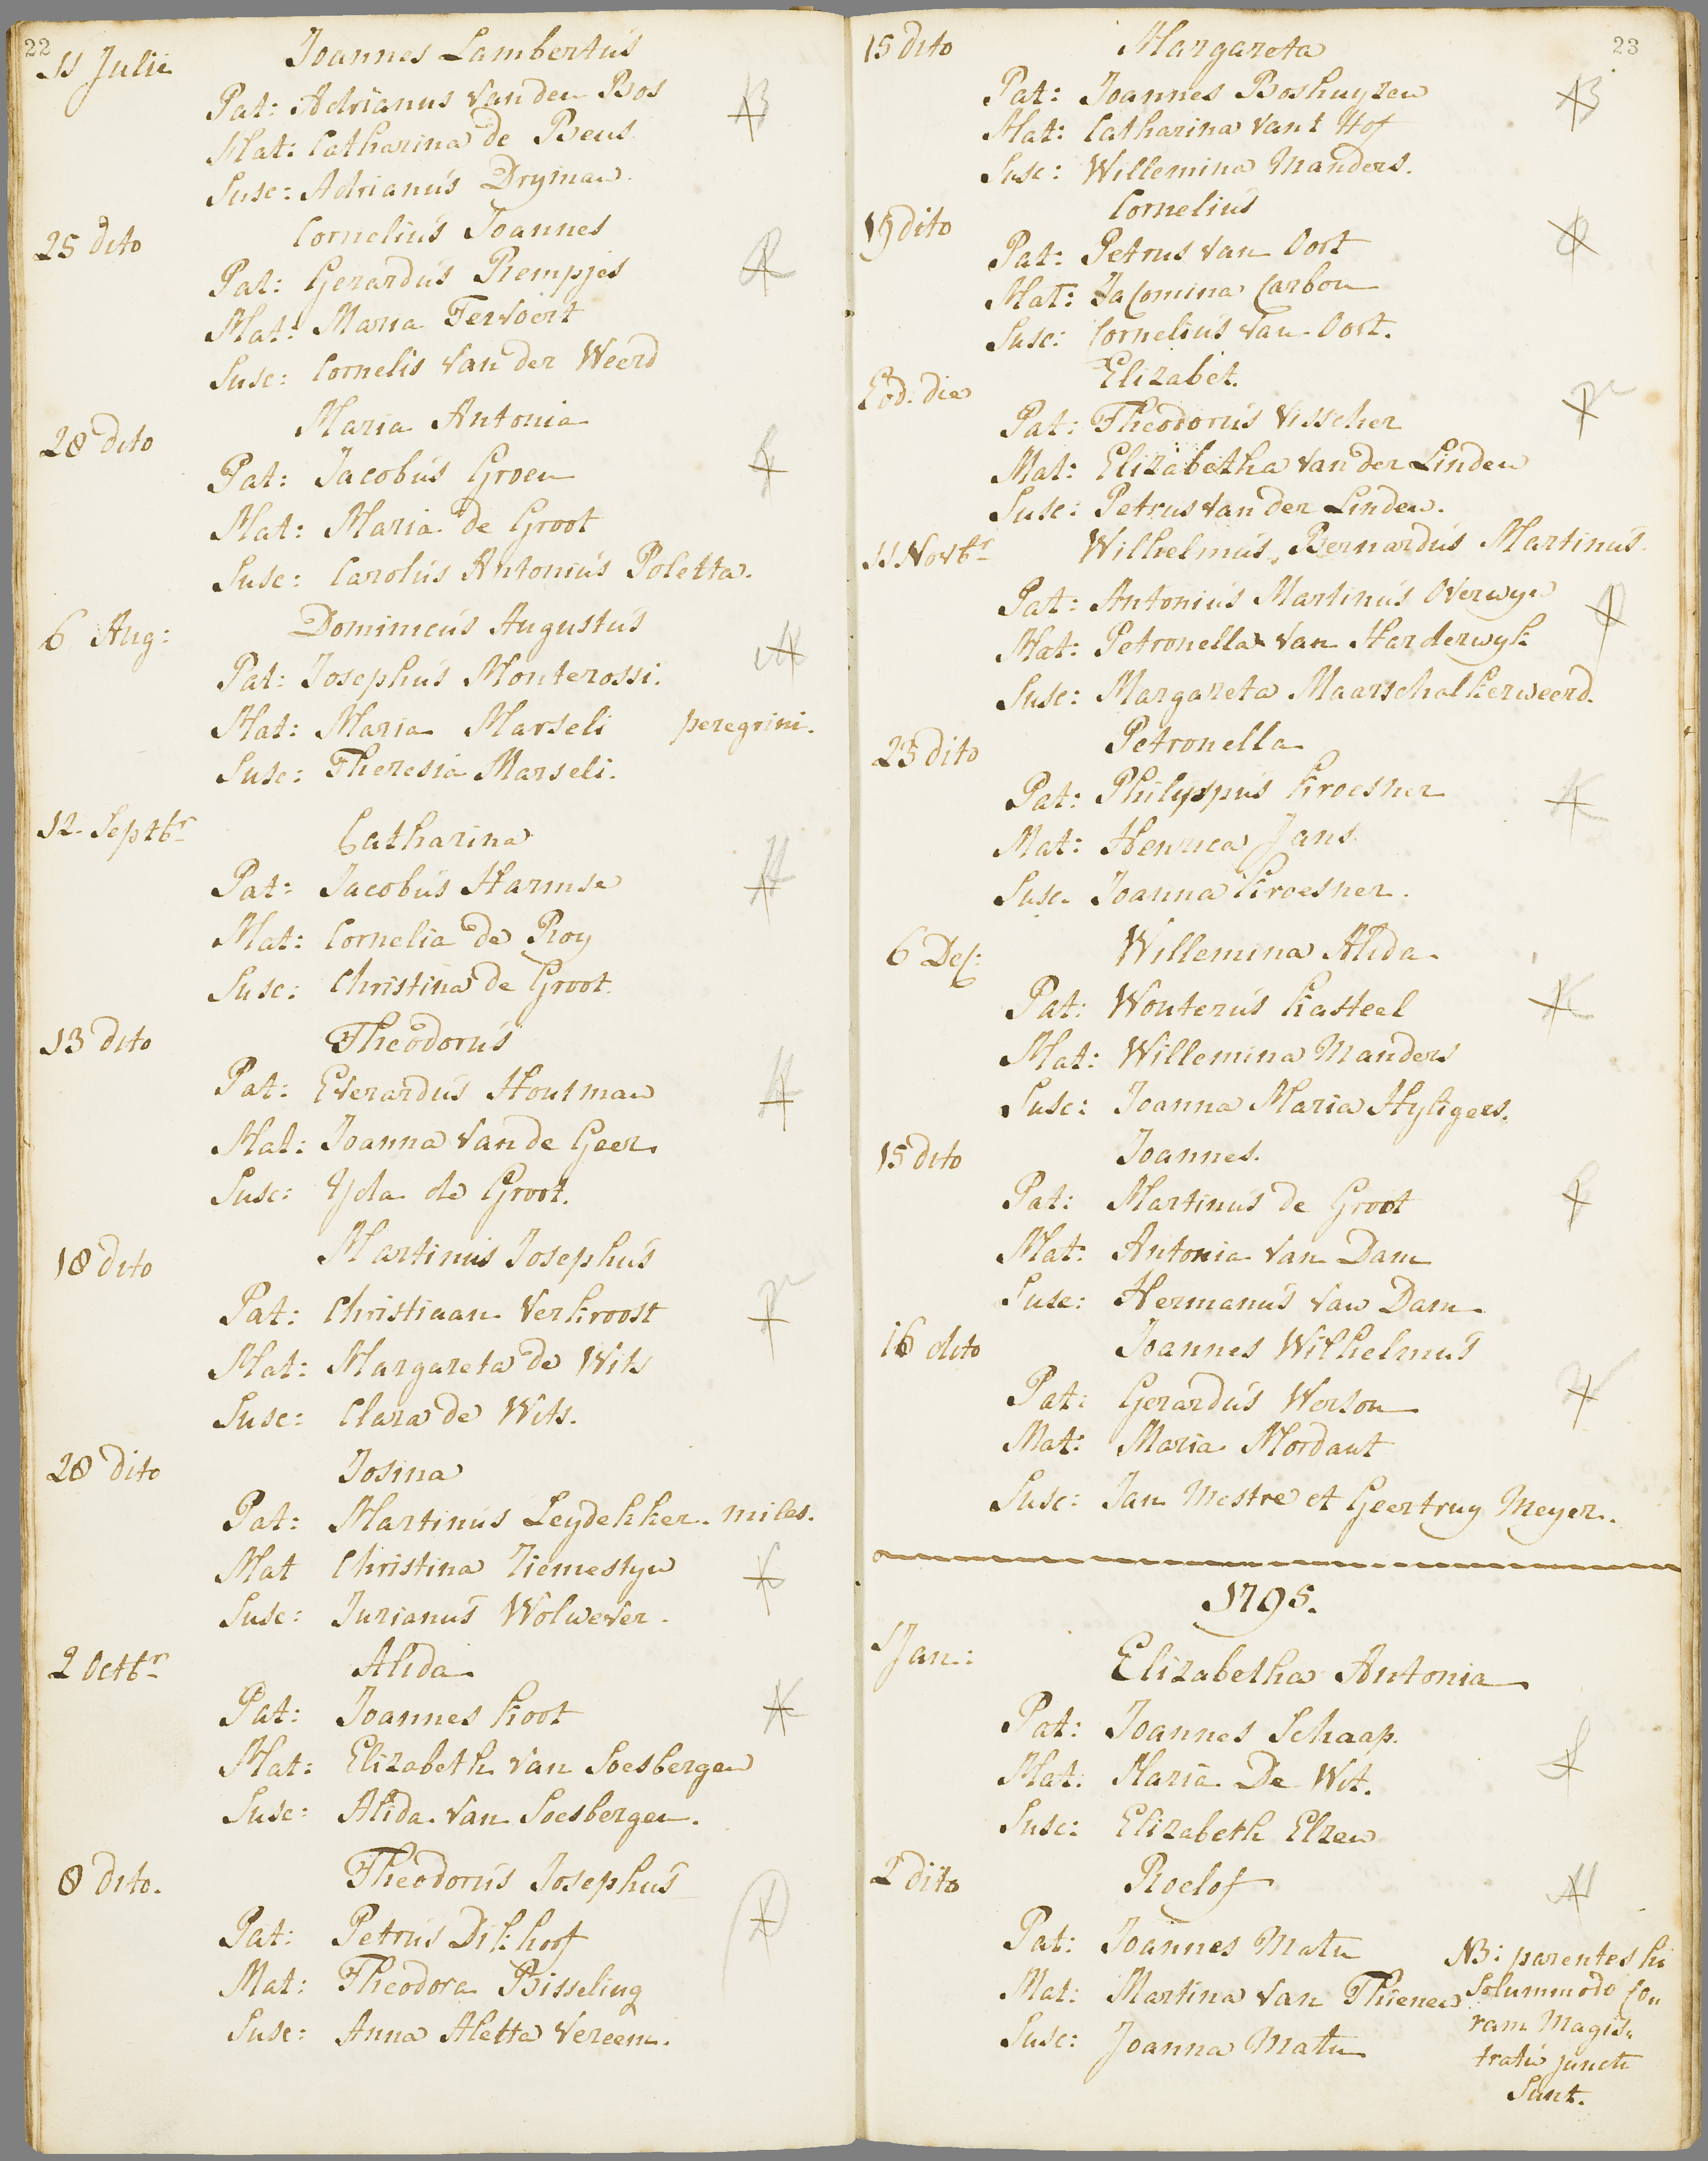 22
11 Julii Joannes Lambertus
Pat: Adrianus van den Bos
Mat: Catharina de Beus
Susc: Adrianus Dryman.
25 dito Cornelius Joannes
Pat: Gerardus Rempjes
Mat: Maria Tervoert
Susc: Cornelis van der Weerd
28 dito Maria Antonia
Pat: Jacobus Groen
Mat: Maria de Groot
Susc: Carolus Antonius Poletta.
6 Aug: Dominicus Augustus
Pat: Josephus Monterossi.
Mat: Maria Marseli peregrini.
Susc: Theresia Marseli.
12 Septbr Catharina
Pat: Jacobus Harmse
Mat: Cornelia de Roy
Susc: Christina de Groot.
13 dito Theodorus
Pat: Everardus Houtman
Mat: Joanna van de Geer
Susc: Yda de Groot.
18 dito Martinus Josephus
Pat: Christiaan Verkroost
Mat: Margareta de Wits
Susc: Clara de Wits.
28 dito Josina
Pat: Martinus Leydekker. miles.
Mat Christina Ziemestyn
Susc: Jurianus Wolwever.
2 Octbr Alida
Pat: Joannes Koot
Mat: Elizabeth van Soesbergen
Susc: Alida van Soesbergen.
8 dito. Theodorus Josephus
Pat: Petrus Dikhoof
Mat: Theodora Bisseling
Susc: Anna Aletta Vereem.
23
15 dito Margareta
Pat: Joannes Boshuyzen
Mat: Catharina van t Hof
Susc: Willemina Manders.
19 dito Cornelius
Pat: Petrus van Oort
Mat: Jacomina Carbon
Susc: Cornelius van Oort.
Eod: die Elizabet.
Pat: Theodorus Visscher
Mat: Elizabetha van der Linden
Susc: Petrus van der Linden.
11 Novbr Wilhelmus, Bernardus Martinus.
Pat: Antonius Martinus Overwyn
Mat: Petronella van Harderwyk
Susc: Margareta Maarschalkerweerd.
23 dito Petronella
Pat: Philyppus Kroesner
Mat: Henrica Jans
Susc. Joanna Kroesner.
6 Dec: Willemina Alida
Pat: Wouterus Kasteel
Mat: Willemina Manders
Susc: Joanna Maria Hyligers.
15 dito Joannes.
Pat: Martinus de Groot
Mat: Antonia van Dam
Susc: Hermanus van Dam.
16 dito Joannes Wilhelmus
Pat: Gerardus Werson
Mat: Maria Mordant
Susc: Jan Mestre et Geertruy Meyer.
1795.
1 Jan: Elizabetha Antonia
Pat: Joannes Schaap.
Mat: Maria De Wit.
Susc: Elizabeth Elzen
2 dito Roelof
Pat: Joannes Matu
Mat: Martina van Thienen
Susc: Joanna Matu
NB: parentes hi
solummodo co„
ram Magis„
tratu juncti
sunt.